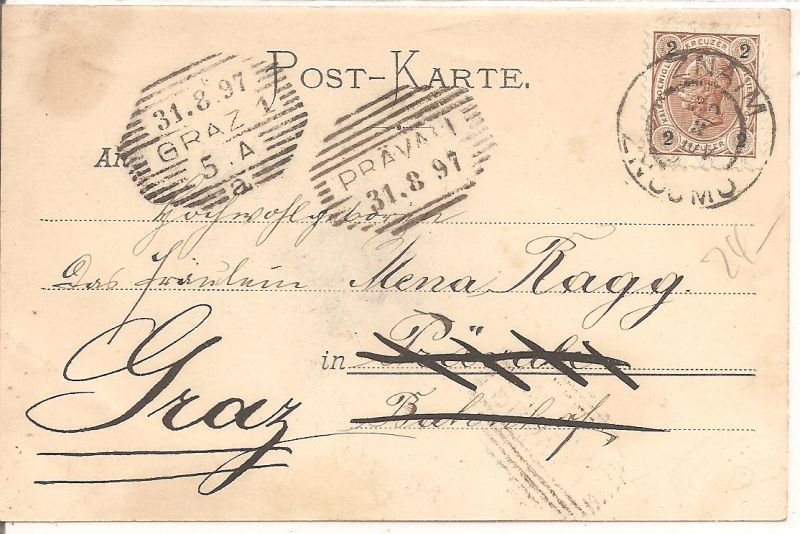 POST-KARTE.
2 KREUZER 2
2 KREUZER 2
ZNAIM
ZNOJMO
31.8.97
GRAZ 1
5.A
a
PRÄVALI
31.8.97
An
Hochwohlgeboren
Das Fräulein Mena Ragg.
in Prävali
Graz
Bahnhof
24-